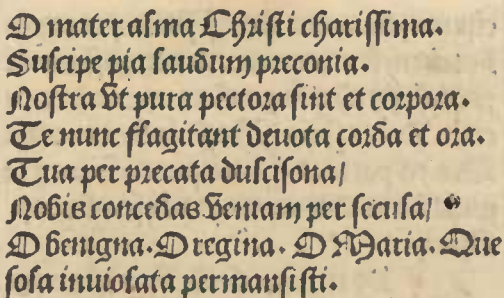 O mater alma Chriſti chariſſima.
Suſcipe pia laudum preconia.
Noſtra vt pura pectora ſint et corpora.
Te nunc flagitant deuota corda et ora.
Tua per precata dulciſona/
Nobis concedas veniam per ſecula/
O benigna. O regina. O Maria. Que
ſola inuiolata permanſiſti.